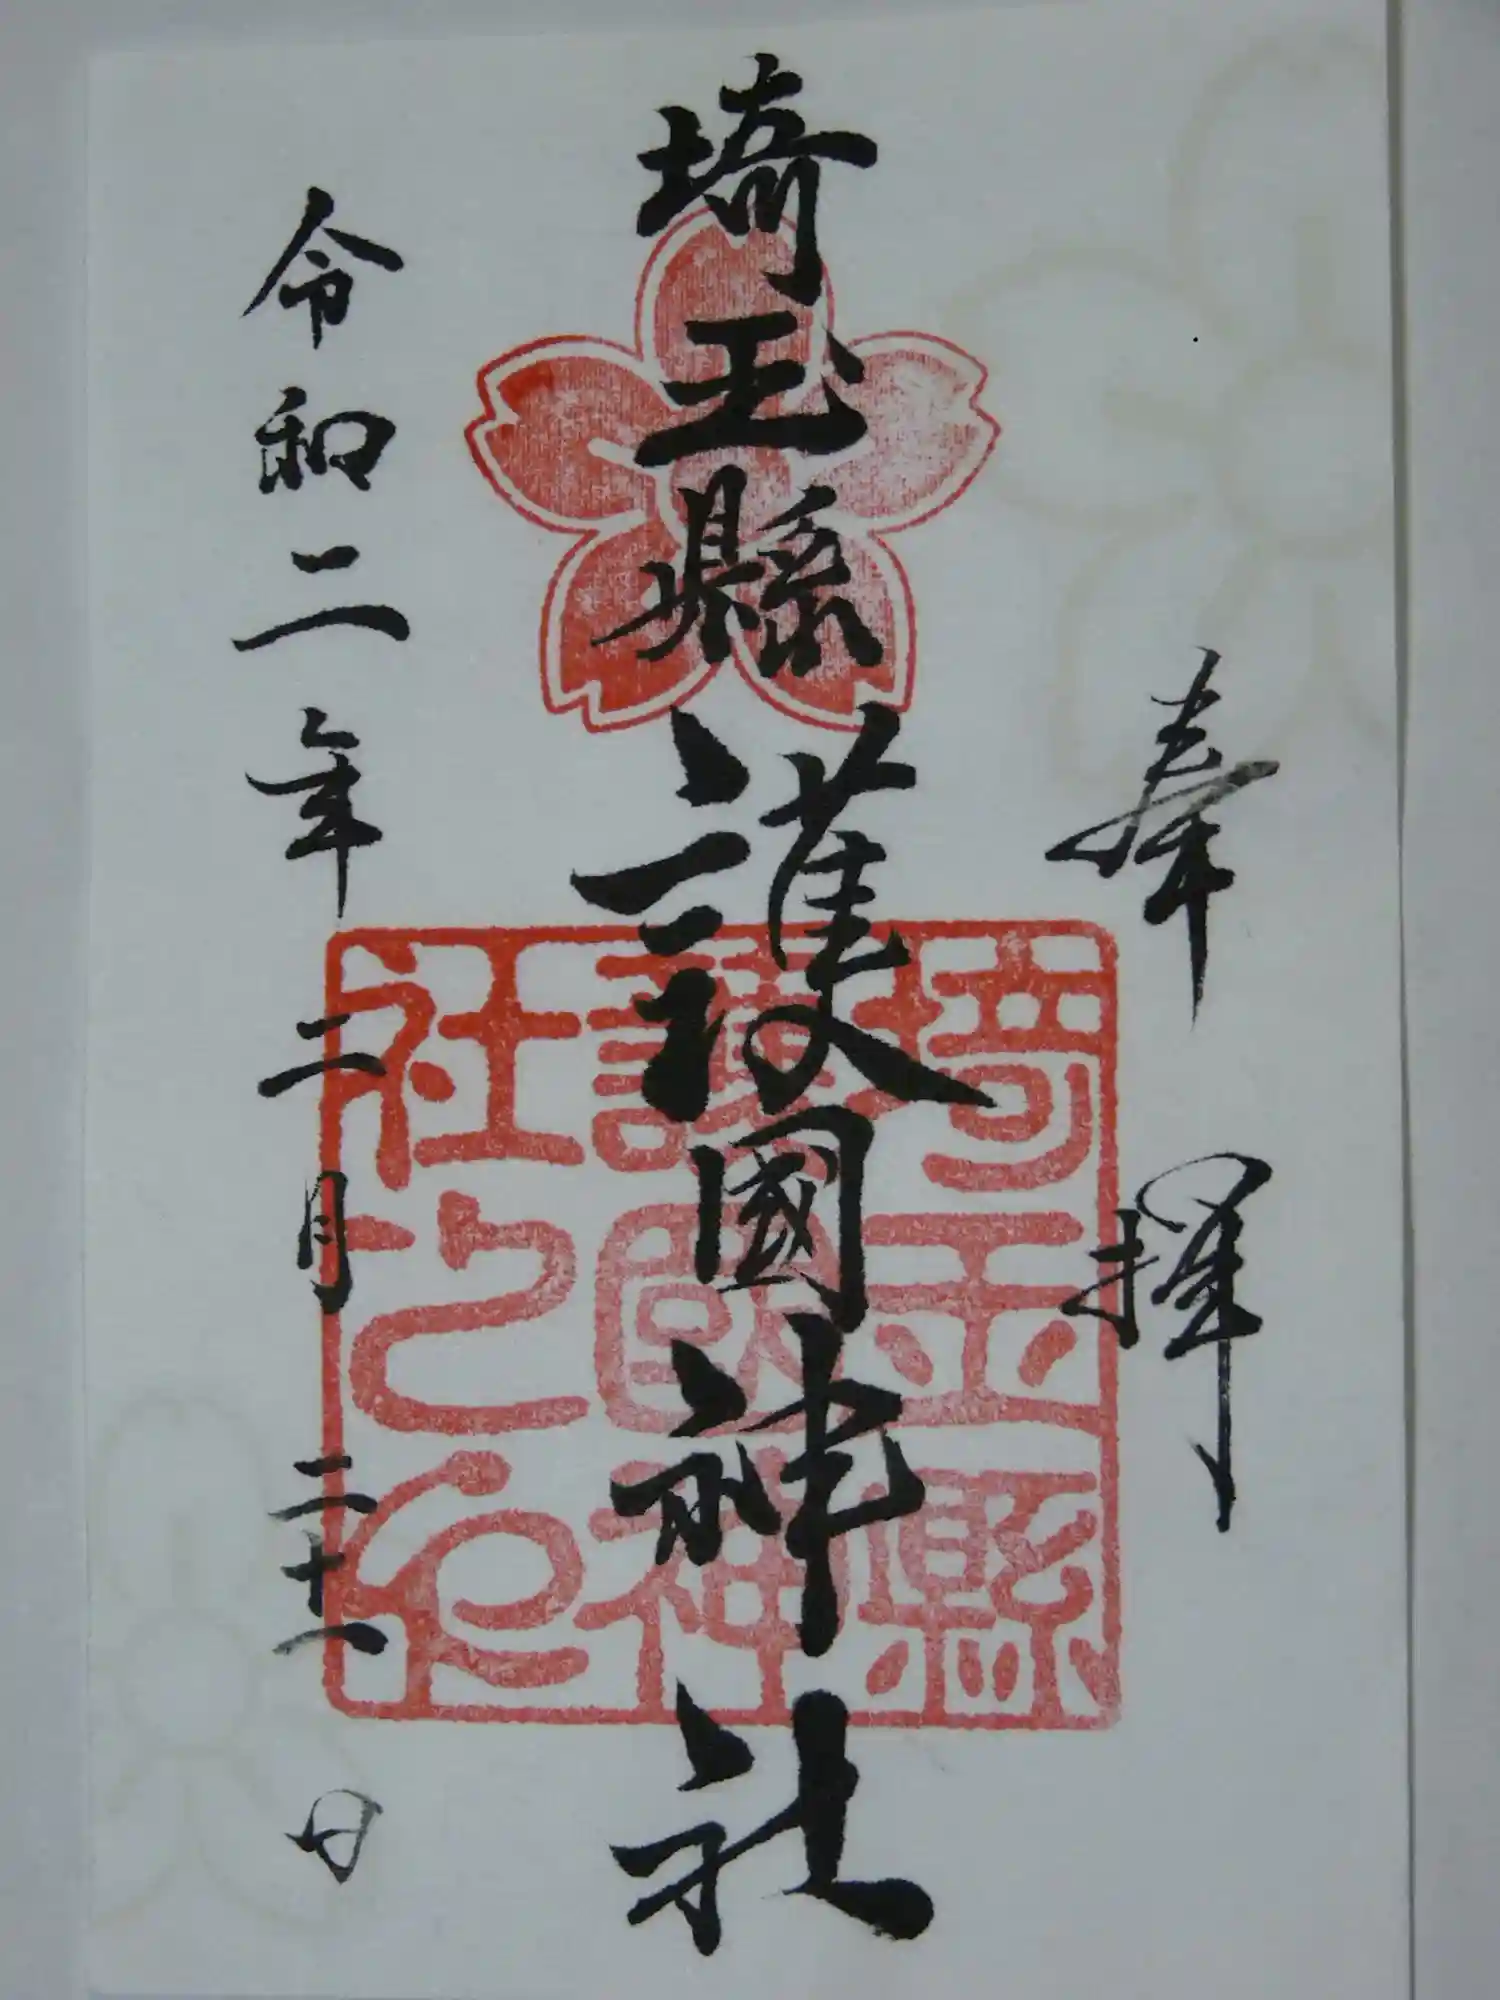 奉拝
埼玉縣護國神社
埼玉縣
護國神
社之印
令和二年二月二十一日